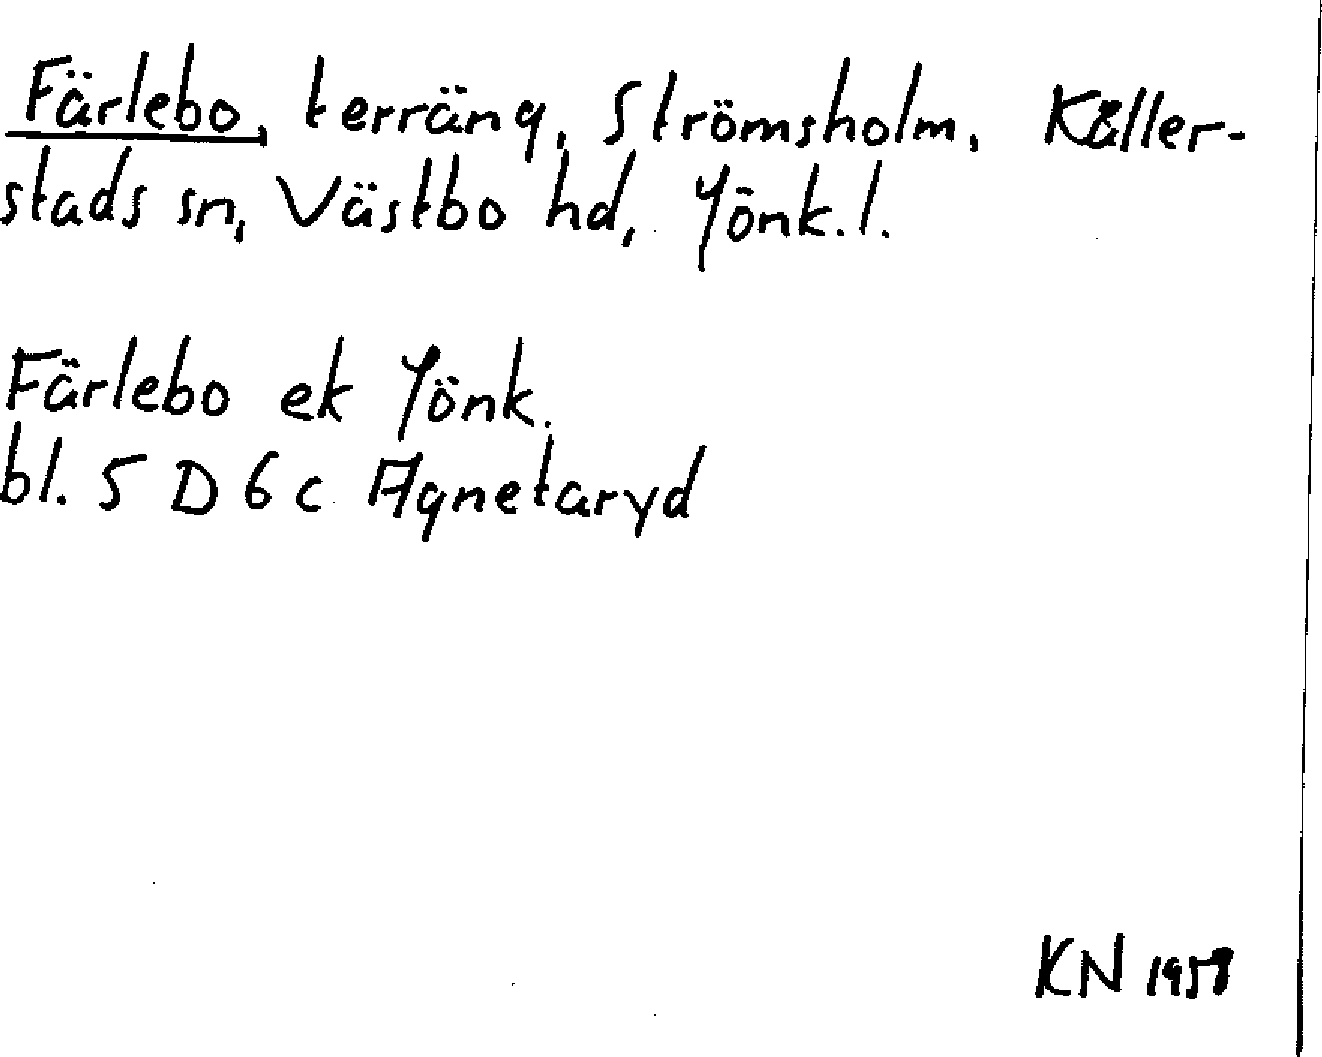 Färlebo, terräng, Strömsholm, Kåller-
stads sn, Västbo hd, Jönk.l.
Färlebo ek Jönk.
bl. 5 D 6 c Agnetaryd
KN